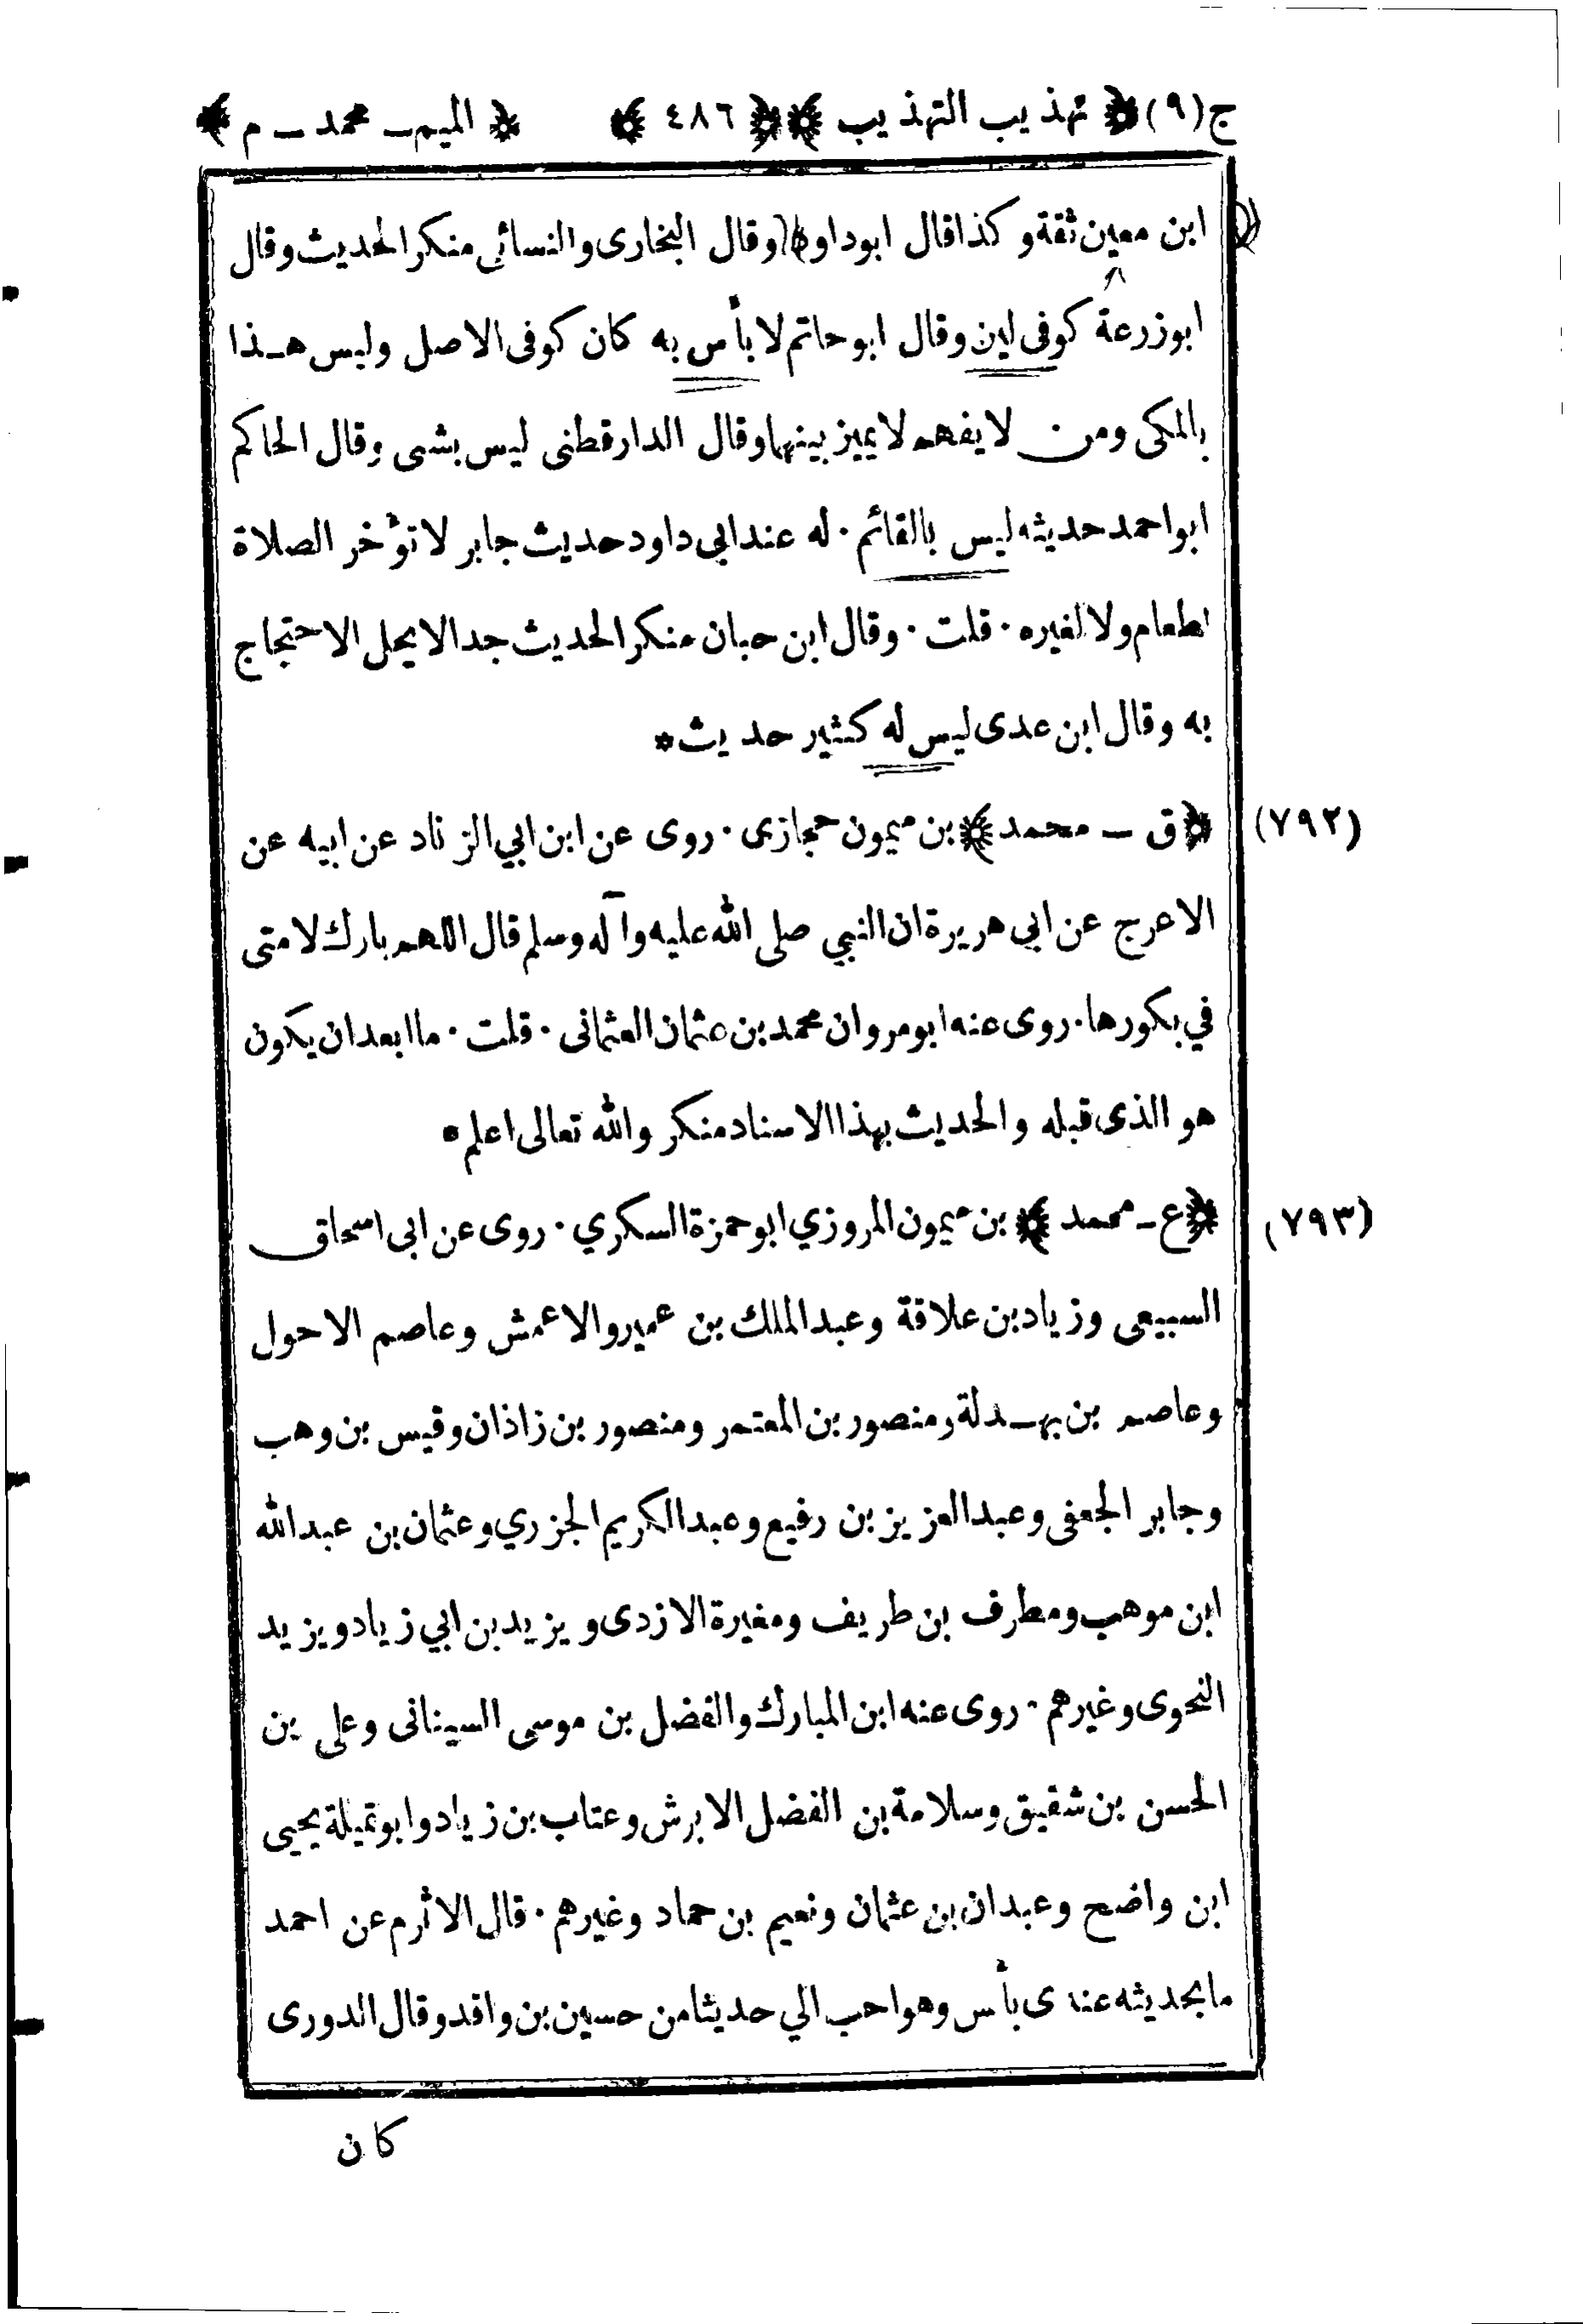 ج (٩) ﴿ تهذيب التهذيب ﴾ ﴿ ٤٨٦ ﴾ ﴿ الميم ـ محمد ـ م ﴾
ابن معين ثقة وكذا قال ابوداود وقال البخارى والنسائى منكر الحديث وقال
ابوزرعة كوفى لين وقال ابوحاتم لا بأس به كان كوفى الاصل وليس هـذا
بالمكى ومن لا يفهم لا يميز بينهما وقال الدارقطنى ليس بشى وقال الحاكم
ابواحمد حديثه ليس بالقائم ٠ له عند ابى داود حديث جابر لا تؤخر الصلاة
لطعام ولا لغيره ٠ قلت ٠ وقال ابن حبان منكر الحديث جدا لا يحل الاحتجاج
به وقال ابن عدى ليس له كثير حديث *
(٧٩٢) ﴿ ق ــ محمد ﴾ بن ميمون حجازى ٠ روى عن ابن ابي الزناد عن ابيه عن
الاعرج عن ابى هريرة ان النبي صلى الله عليه وآله وسلم قال اللهم بارك لامتى
في بكورها ٠ روى عنه ابومروان محمد بن عثمان العثمانى ٠ قلت ٠ ما ابعد ان يكون
هو الذى قبله والحديث بهذا الاسناد منكر والله تعالى اعلم *
(٧٩٣) ﴿ ع ـ محمد ﴾ بن ميمون المروزي ابوحمزة السكري ٠ روى عن ابى اسحاق
السبيعى وزياد بن علاقة وعبد الملك بن عمير والاعمش وعاصم الاحول
وعاصم بن بهـدلة ومنصور بن المعتمر ومنصور بن زاذان وقيس بن وهب
وجابر الجعفى وعبد العزيز بن رفيع وعبد الكريم الجزري وعثمان بن عبد الله
ابن موهب ومطرف بن طريف ومغيرة الازدى ويزيد بن ابي زياد ويزيد
النحوى وغيرهم ٠ روى عنه ابن المبارك والفضل بن موسى السينانى وعلى بن
الحسن بن شقيق وسلامة بن الفضل الابرش وعتاب بن زياد وابوتميلة يحيى
ابن واضح وعبدان بن عثمان ونعيم بن حماد وغيرهم ٠ قال الاثرم عن احمد
ما بحديثه عندى بأس وهو احب الي حديثا من حسين بن واقد وقال الدورى
كان